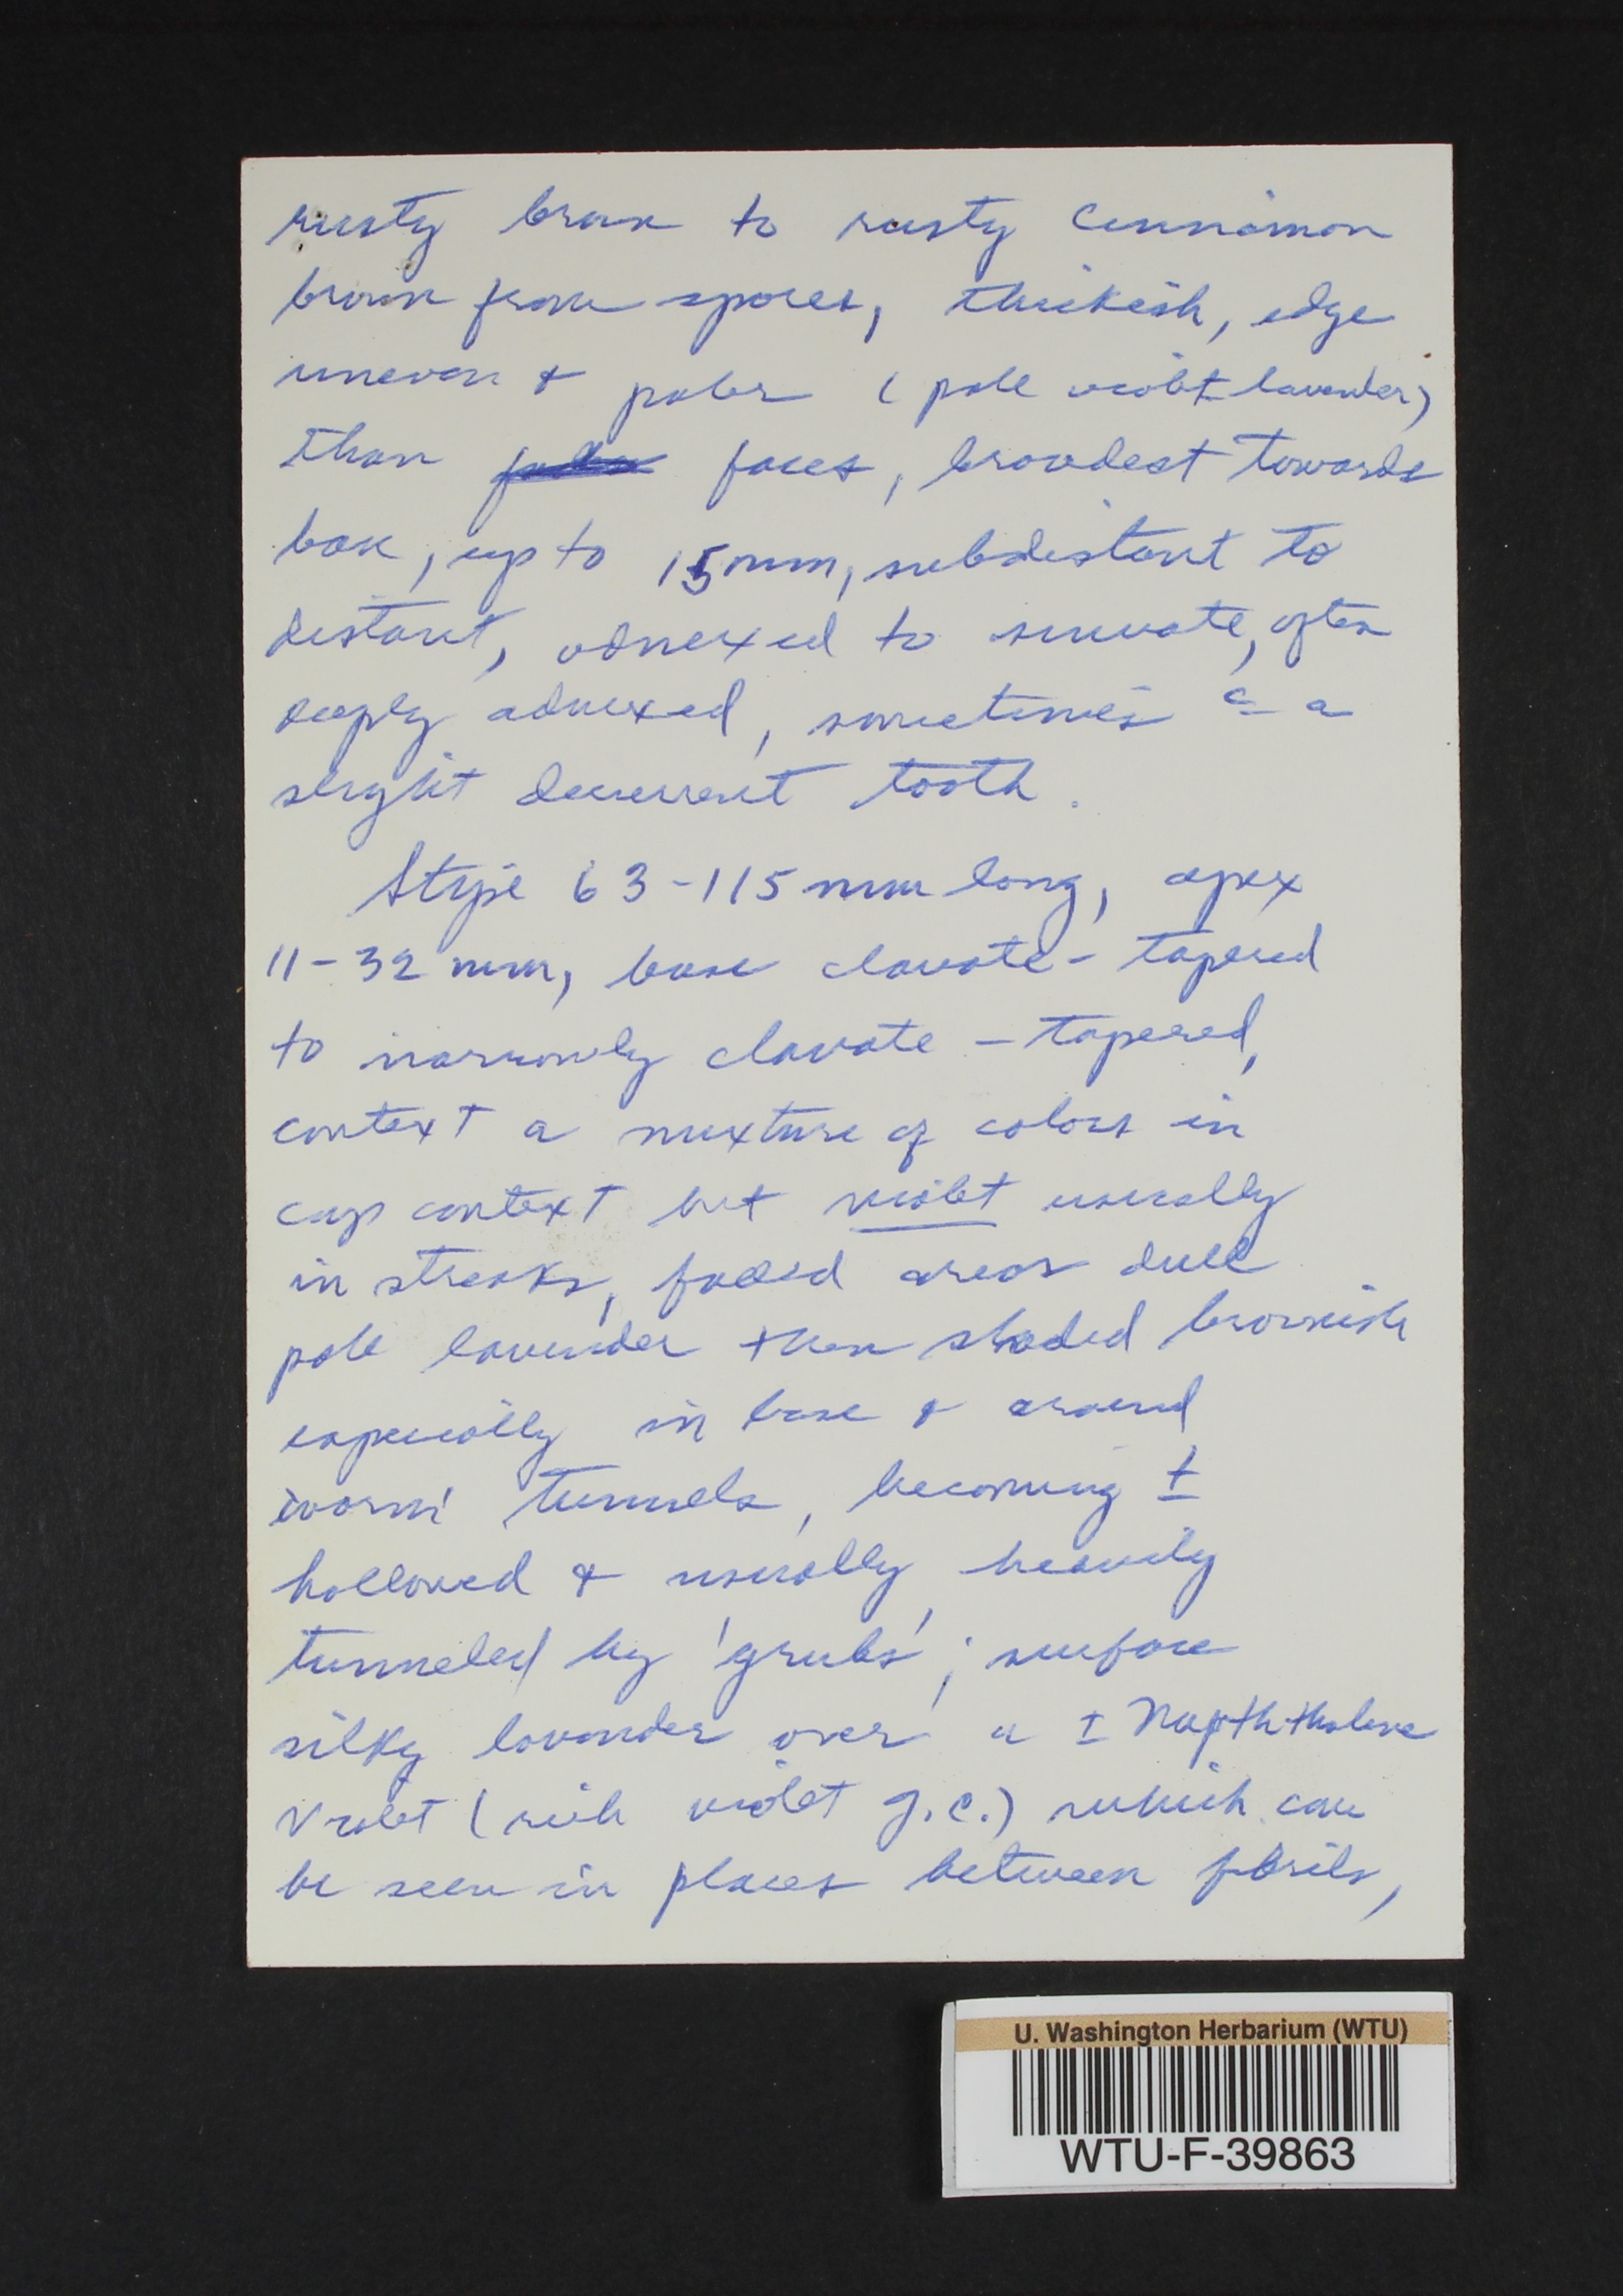 rusty brown to rusty cinnamon
brown from spores, thickish, edge
uneven & paler (pale violet lavender)
than faces, broadest towards
base, up to 15 mm, subdistant to
distant, adnexed to sinuate, often
deeply adnexed, sometimes c̄ a
slight decurrent tooth.
Stipe 63-115 mm long, apex
11-32 mm, base clavate-tapered
to narrowly clavate-tapered,
context a mixture of colors in
cap context but violet usually
in streaks, faded areas dull
pale lavender then shaded brownish
especially in base & around
'worm' tunnels, becoming ±
hollowed & usually heavily
tunneled by 'grubs'; surface
silky lavender over a ± Napththalene
Violet (rich violet g.c.) which can
be seen in places between fibrils,
U. Washington Herbarium (WTU)
WTU-F-39863